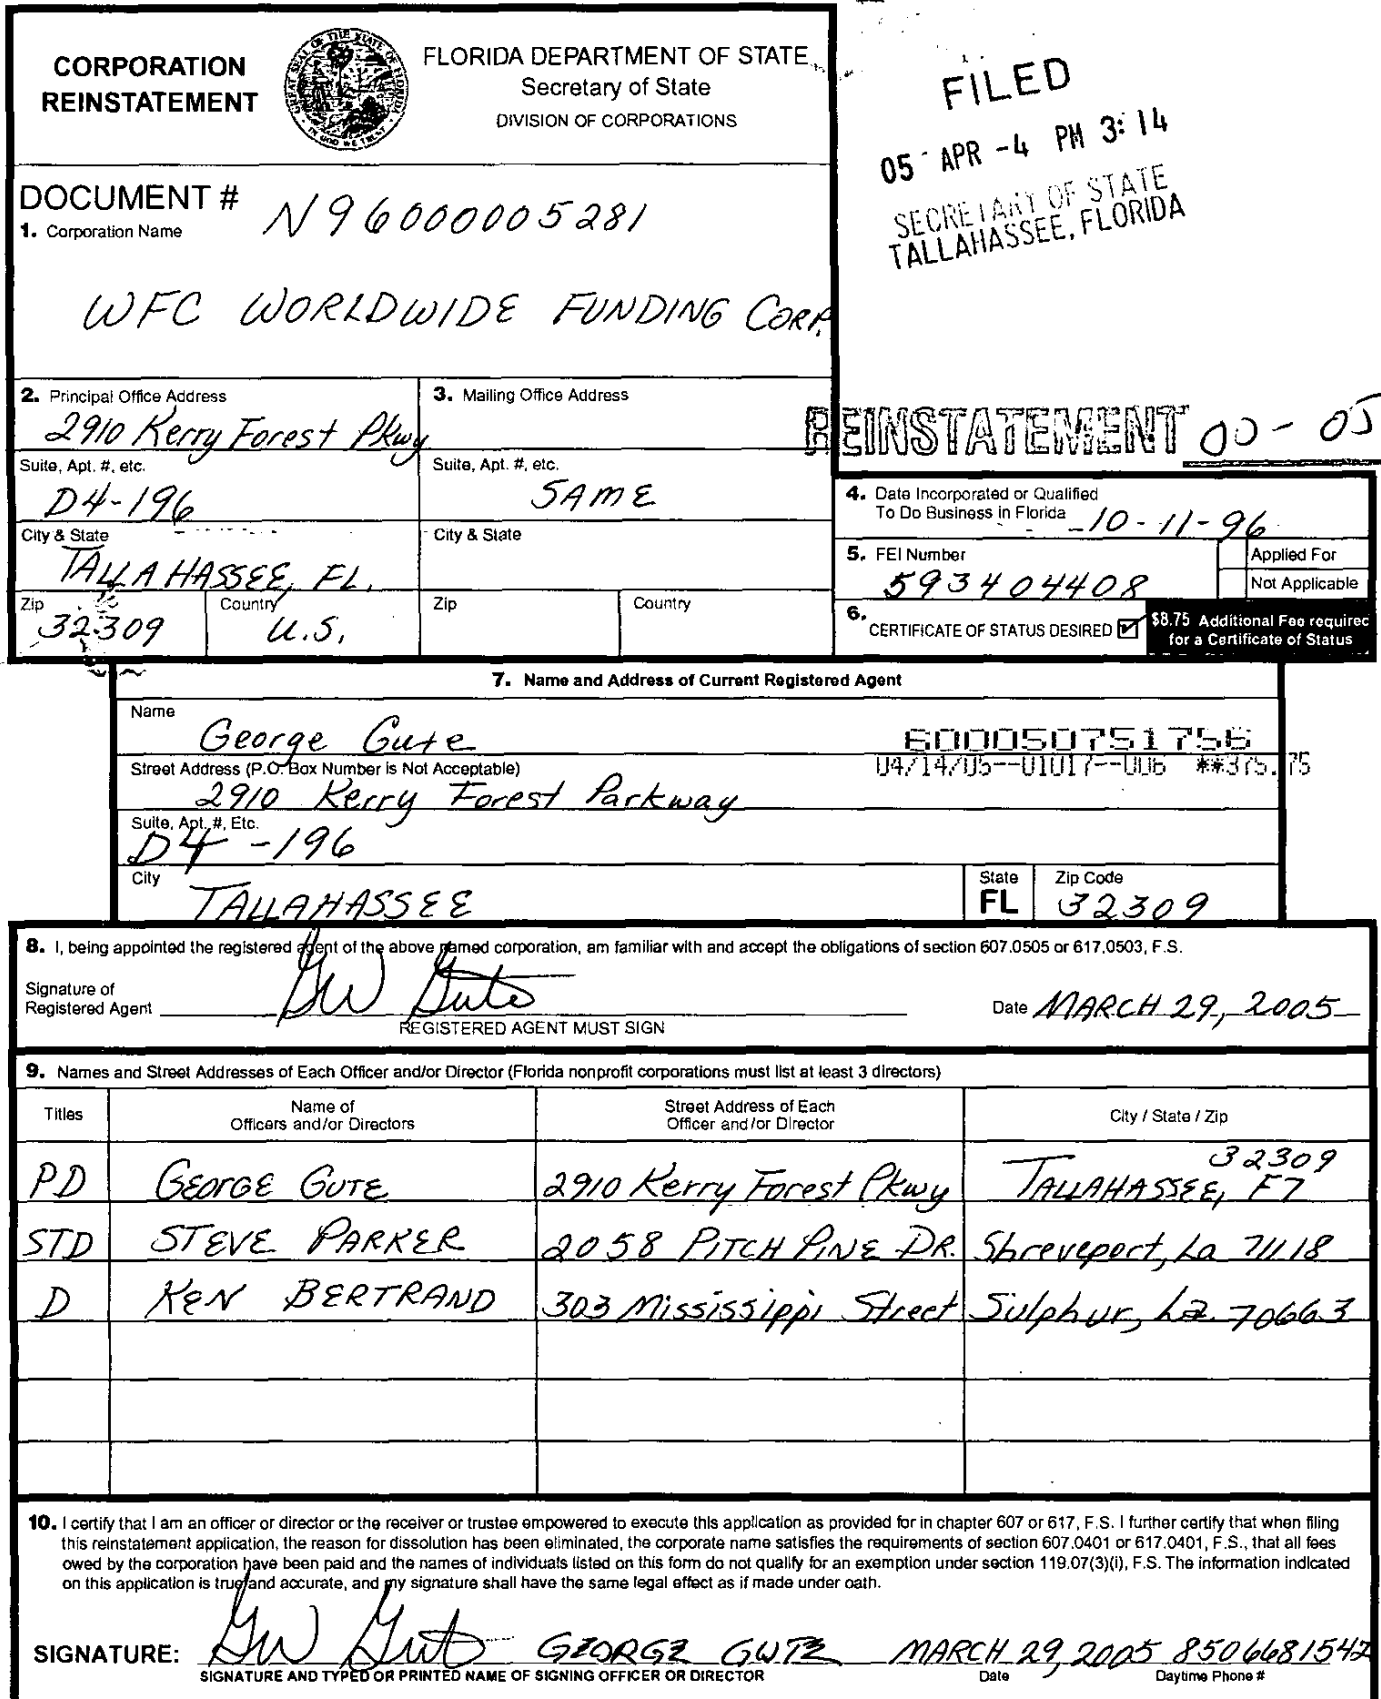 CORPORATION
REINSTATEMENT
GREAT SEAL OF THE STATE OF FLORIDA
IN GOD WE TRUST
FLORIDA DEPARTMENT OF STATE
Secretary of State
DIVISION OF CORPORATIONS
FILED
05 APR -4 PM 3:14
SECRETARY OF STATE
TALLAHASSEE, FLORIDA
DOCUMENT # N96000005281
1. Corporation Name
WFC WORLDWIDE FUNDING CORP.
2. Principal Office Address
2910 Kerry Forest Pkwy
3. Mailing Office Address
REINSTATEMENT 00-05
Suite, Apt. #, etc.
D4-196
Suite, Apt. #, etc.
SAME
4. Date Incorporated or Qualified
To Do Business in Florida 10-11-96
City & State
TALLAHASSEE, FL.
City & State
5. FEI Number
593404408
Applied For
Not Applicable
Zip
32309
Country
U.S.
Zip
Country
6. CERTIFICATE OF STATUS DESIRED
$8.75 Additional Fee required
for a Certificate of Status
7. Name and Address of Current Registered Agent
Name
George Gute
600050751756
04/14/05--01017--006 **375.75
Street Address (P.O. Box Number is Not Acceptable)
2910 Kerry Forest Parkway
Suite, Apt. #, Etc.
D4-196
City
TALLAHASSEE
State
FL
Zip Code
32309
8. I, being appointed the registered agent of the above named corporation, am familiar with and accept the obligations of section 607.0505 or 617.0503, F.S.
Signature of
Registered Agent GW Gute
Date MARCH 29, 2005
REGISTERED AGENT MUST SIGN
9. Names and Street Addresses of Each Officer and/or Director (Florida nonprofit corporations must list at least 3 directors)
Titles
Name of
Officers and/or Directors
Street Address of Each
Officer and/or Director
City / State / Zip
PD GEORGE GUTE 2910 Kerry Forest Pkwy TALLAHASSEE, FL 32309
STD STEVE PARKER 2058 PITCH PINE DR. Shreveport, La 71118
D KEN BERTRAND 303 Mississippi Street Sulphur, La. 70663
10. I certify that I am an officer or director or the receiver or trustee empowered to execute this application as provided for in chapter 607 or 617, F.S. I further certify that when filing
this reinstatement application, the reason for dissolution has been eliminated, the corporate name satisfies the requirements of section 607.0401 or 617.0401, F.S., that all fees
owed by the corporation have been paid and the names of individuals listed on this form do not qualify for an exemption under section 119.07(3)(i), F.S. The information indicated
on this application is true and accurate, and my signature shall have the same legal effect as if made under oath.
SIGNATURE: GW Gute GEORGE GUTE MARCH 29, 2005 8506681542
SIGNATURE AND TYPED OR PRINTED NAME OF SIGNING OFFICER OR DIRECTOR
Date
Daytime Phone #